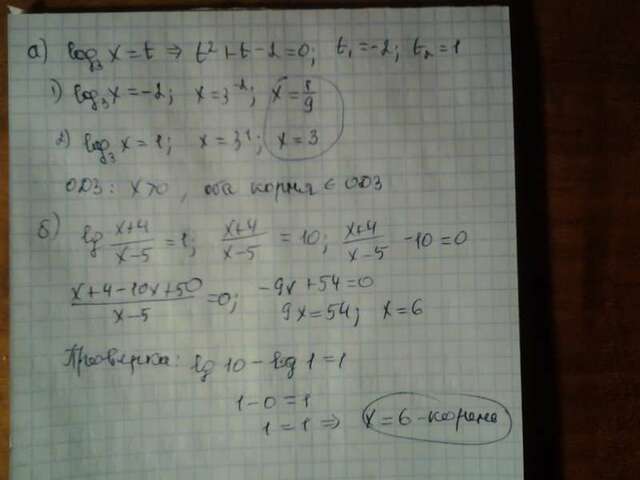 а) log₃ x = t ⇒ t² + t - 2 = 0; t₁ = -2; t₂ = 1
1) log₃ x = -2; x = 3⁻²; x = 1/9
2) log₃ x = 1; x = 3¹; x = 3
ОДЗ: x > 0, оба корня ∈ ОДЗ
б) lg (x+4)/(x-5) = 1; (x+4)/(x-5) = 10; (x+4)/(x-5) - 10 = 0
(x+4-10x+50)/(x-5) = 0; -9x + 54 = 0
9x = 54; x = 6
Проверка: lg 10 - log 1 = 1
1 - 0 = 1
1 = 1 ⇒ x = 6 - корень